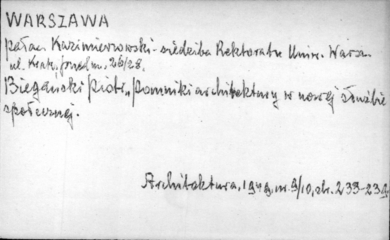 WARSZAWA
pałac Kazimierzowski - siedziba Rektoratu Uniw. Warsz.
ul. Krak. Przedm. 26/28.
Biegański Piotr, Pomniki architektury w nowej służbie
społecznej.
Architektura, 1949, nr 9/10, str. 233-239